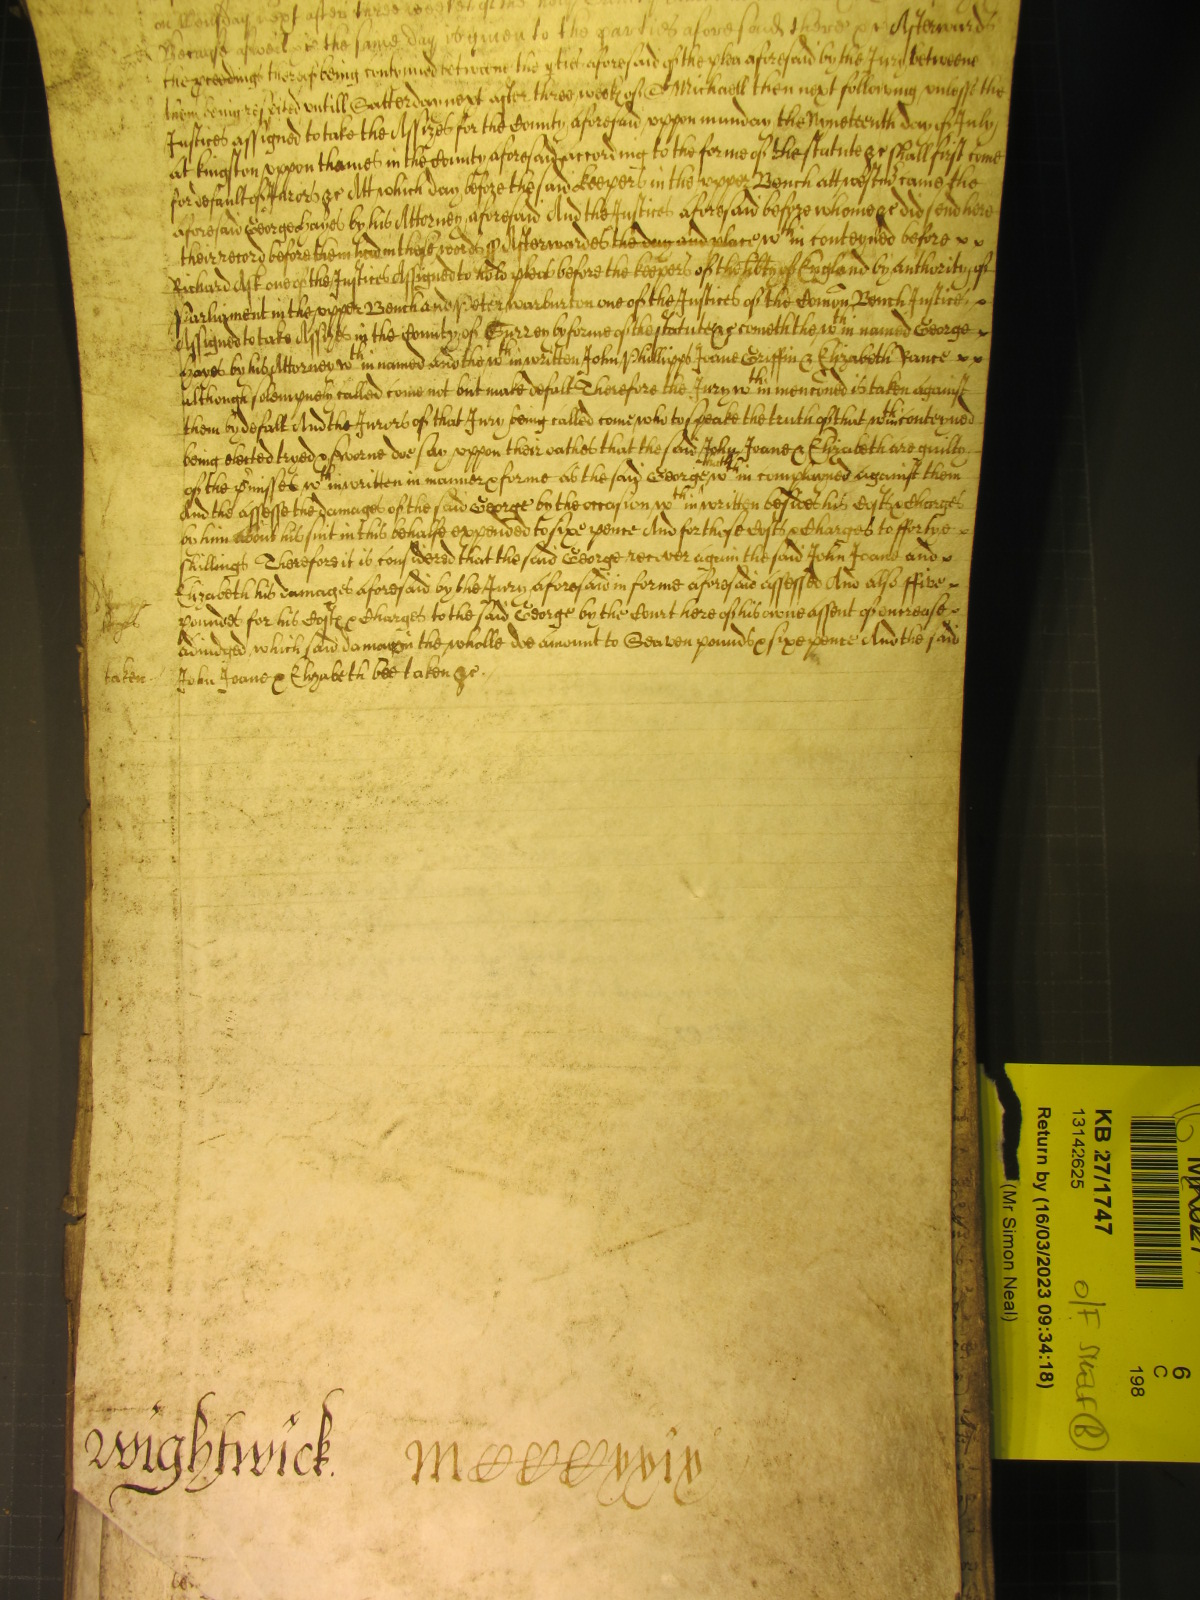 on Wensday next after three weekes of the holy Trinity
Because aswell &c the same day is given to the parties aforesaid there &c Afterwards
the proceedings thereof being continued betweene the pties aforesaid of the plea aforesaid by the Jury betweene
them being respited untill Satterday next after three weeks of St Michaell then next following unless the
Justices assigned to take the Assizes for the County aforesaid uppon munday the Nyneteenth day of July
at kingston uppon thames in the County aforesaid according to the forme of the statute &c shall first come
for default of Jurors &c Att which day before the said keepers in the upper Bench att westm came the
aforesaid George Hayes by his Attorney aforesaid And the Justices aforesaid before whome &c did send here
their record before them had in these words Afterwardes the day and place wth in conteyned before
Richard Ask one of the Justices Assigned to hold pleas before the keepers of the libty of England by authority of
Parliament in the upper Bench and Peter warburton one of the Justices of the Comon Bench Justices
Assigned to take Assizes in the County of Surrey by forme of the statute &c cometh the wth in named George
Hayes by his Attorney wth in named And the wth in written John Phillipps Joane Griffin & Elizabeth Vance
although solempnely called come not but make defalt Therefore the Jury wth in menconed is taken against
them by defalt And the Jurors of that Jury being called come who to speake the truth of that wthin conteyned
being elected tryed & sworne doe say uppon their oathes that the said John Joane & Elizabeth are guilty
of the pmisses wth in written in manner & forme as the said George hath wth in complayned against them
And the assesse the damages of the said George by the occasion wth in written besides his Costs & Charges
by him about his suit in this behalfe expended to sixe pence And for those Costs & Charges to ffortye
shillings Therefore it is considered that the said George recover again the said John Joane and
Elizabeth his damages aforesaid by the Jury aforesaid in forme aforesaid assessed And also ffive
pounds for his Costs & Charges to the said George by the Court here of his owne assent of encrease
adiudged which said damags in the wholle doe amount to Seaven pounds & sixe pence And the said
taken John Joane & Elizabeth bee taken &c
Wightwick.
KB 27/1747
13142625
Return by (16/03/2023 09:34:18)
(Mr Simon Neal)
6
C
198